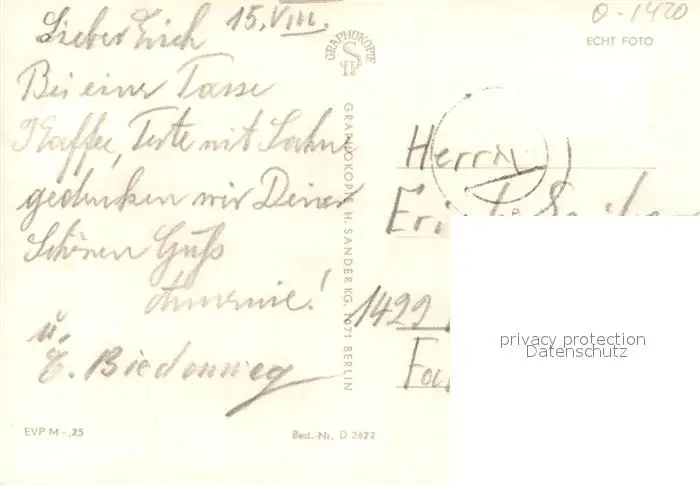 15. VIII.
Lieber Erich
Bei einer Tasse
Kaffee, Torte mit Sahne
gedenken wir Deiner
Schönen Gruß
Annemie!
u.
E.
EVP M -,25
Best.-Nr. D 2622
GRAPHOKOPIE
GRAPHOKOPIE H. SANDER KG, 1071 BERLIN
0-1420
ECHT FOTO
Herrn
1422
privacy protection
Datenschutz